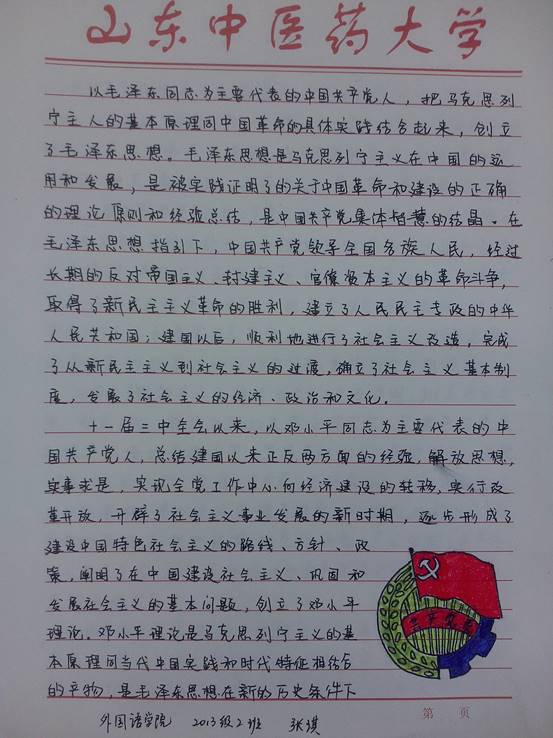 山东中医药大学
以毛泽东同志为主要代表的中国共产党人，把马克思列
宁主人的基本原理同中国革命的具体实践结合起来，创立
了毛泽东思想。毛泽东思想是马克思列宁主义在中国的运
用和发展，是被实践证明了的关于中国革命和建设的正确
的理论原则和经验总结，是中国共产党集体智慧的结晶。在
毛泽东思想指引下，中国共产党领导全国各族人民，经过
长期的反对帝国主义、封建主义、官僚资本主义的革命斗争，
取得了新民主主义革命的胜利，建立了人民民主专政的中华
人民共和国；建国以后，顺利地进行了社会主义改造，完成
了从新民主主义到社会主义的过渡，确立了社会主义基本制
度，发展了社会主义的经济、政治和文化。
十一届三中全会以来，以邓小平同志为主要代表的中
国共产党人，总结建国以来正反两方面的经验，解放思想，
实事求是，实现全党工作中心向经济建设的转移，实行改
革开放，开辟了社会主义事业发展的新时期，逐步形成了
建设中国特色社会主义的路线、方针、政
策，阐明了在中国建设社会主义、巩固和
发展社会主义的基本问题，创立了邓小平
理论。邓小平理论是马克思列宁主义的基
本原理同当代中国实践和时代特征相结合
的产物，是毛泽东思想在新的历史条件下
第 页
外国语学院 2013级2班 张琪